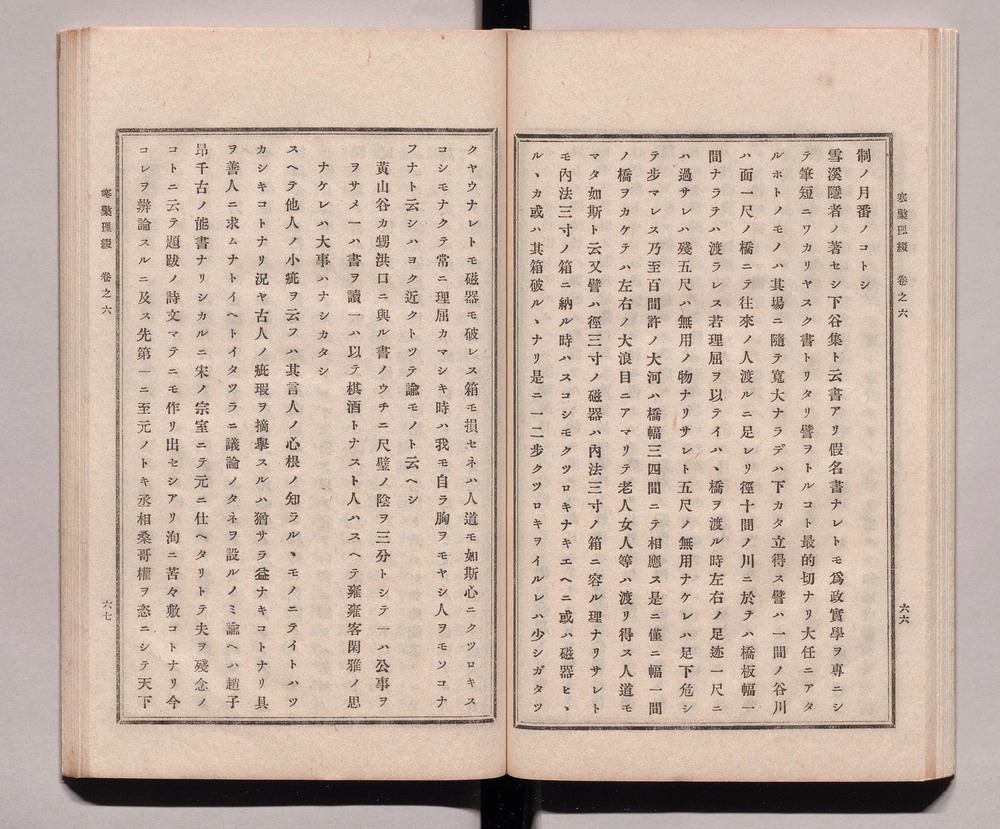 寒檠璅綴　卷之六
制ノ月番ノコトシ
雪溪隱者ノ著セシ下谷集ト云書アリ假名書ナレトモ爲政實學ヲ專ニシ
テ筆短ニワカリヤスク書トリタリ譬ヲトルコト最的切ナリ大任ニアタ
ルホトノモノハ其場ニ隨テ寬大ナラデハ下カタ立得ス譬ハ一間ノ谷川
ハ面一尺ノ橋ニテ往來ノ人渡ルニ足レリ徑十間ノ川ニ於テハ橋板幅一
間ナラテハ渡ラレス若理屈ヲ以テイハヽ橋ヲ渡ル時左右ノ足迹一尺ニ
ハ過サレハ殘五尺ハ無用ノ物ナリサレト五尺ノ無用ナケレハ足下危シ
テ步マレス乃至百間許ノ大河ハ橋幅三四間ニテ相應ス是ニ僅ニ幅一間
ノ橋ヲカケテハ左右ノ大浪目ニアマリテ老人女人等ハ渡リ得ス人道モ
マタ如斯ト云又譬ハ徑三寸ノ磁器ハ內法三寸ノ箱ニ容ル理ナリサレト
モ內法三寸ノ箱ニ納ル時ハスコシモクツロキナキエヘニ或ハ磁器ヒヽ
ルヽカ或ハ其箱破ルヽナリ是ニ一二步クツロキヲイルレハ少シガタツ
六六
クヤウナレトモ磁器モ破レス箱モ損セネハ人道モ如斯心ニクツロキス
コシモナクテ常ニ理屈カマシキ時ハ我モ自ラ胸ヲモヤシ人ヲモソコナ
フナト云シハヨク近クトツテ諭モノト云ヘシ
黃山谷カ甥洪口ニ與ル書ノウチニ尺璧ノ陰ヲ三分トシテ一ハ公事ヲ
ヲサメ一ハ書ヲ讀一ハ以テ棋酒トナスト人ハスヘテ雍雍客閑雅ノ思
ナケレハ大事ハナシカタシ
スヘテ他人ノ小疵ヲ云フハ其言人ノ心根ノ知ラルヽモノニライトハツ
カシキコトナリ況ヤ古人ノ疵瑕ヲ摘擧スルハ猶サラ益ナキコトナリ具
ヲ善人ニ求ムナトイヘトイタツラニ議論ノタネヲ設ルノミ諭ヘハ趙子
昂千古ノ能書ナリシカルニ宋ノ宗室ニテ元ニ仕ヘタリトテ夫ヲ殘念ノ
コトニ云テ題跋ノ詩文マテニモ作リ出セシアリ洵ニ苦々敷コトナリ今
コレヲ辨論スルニ及ス先第一ニ至元ノトキ丞相桑哥權ヲ恣ニシテ天下
寒檠璅綴　卷之六
六七